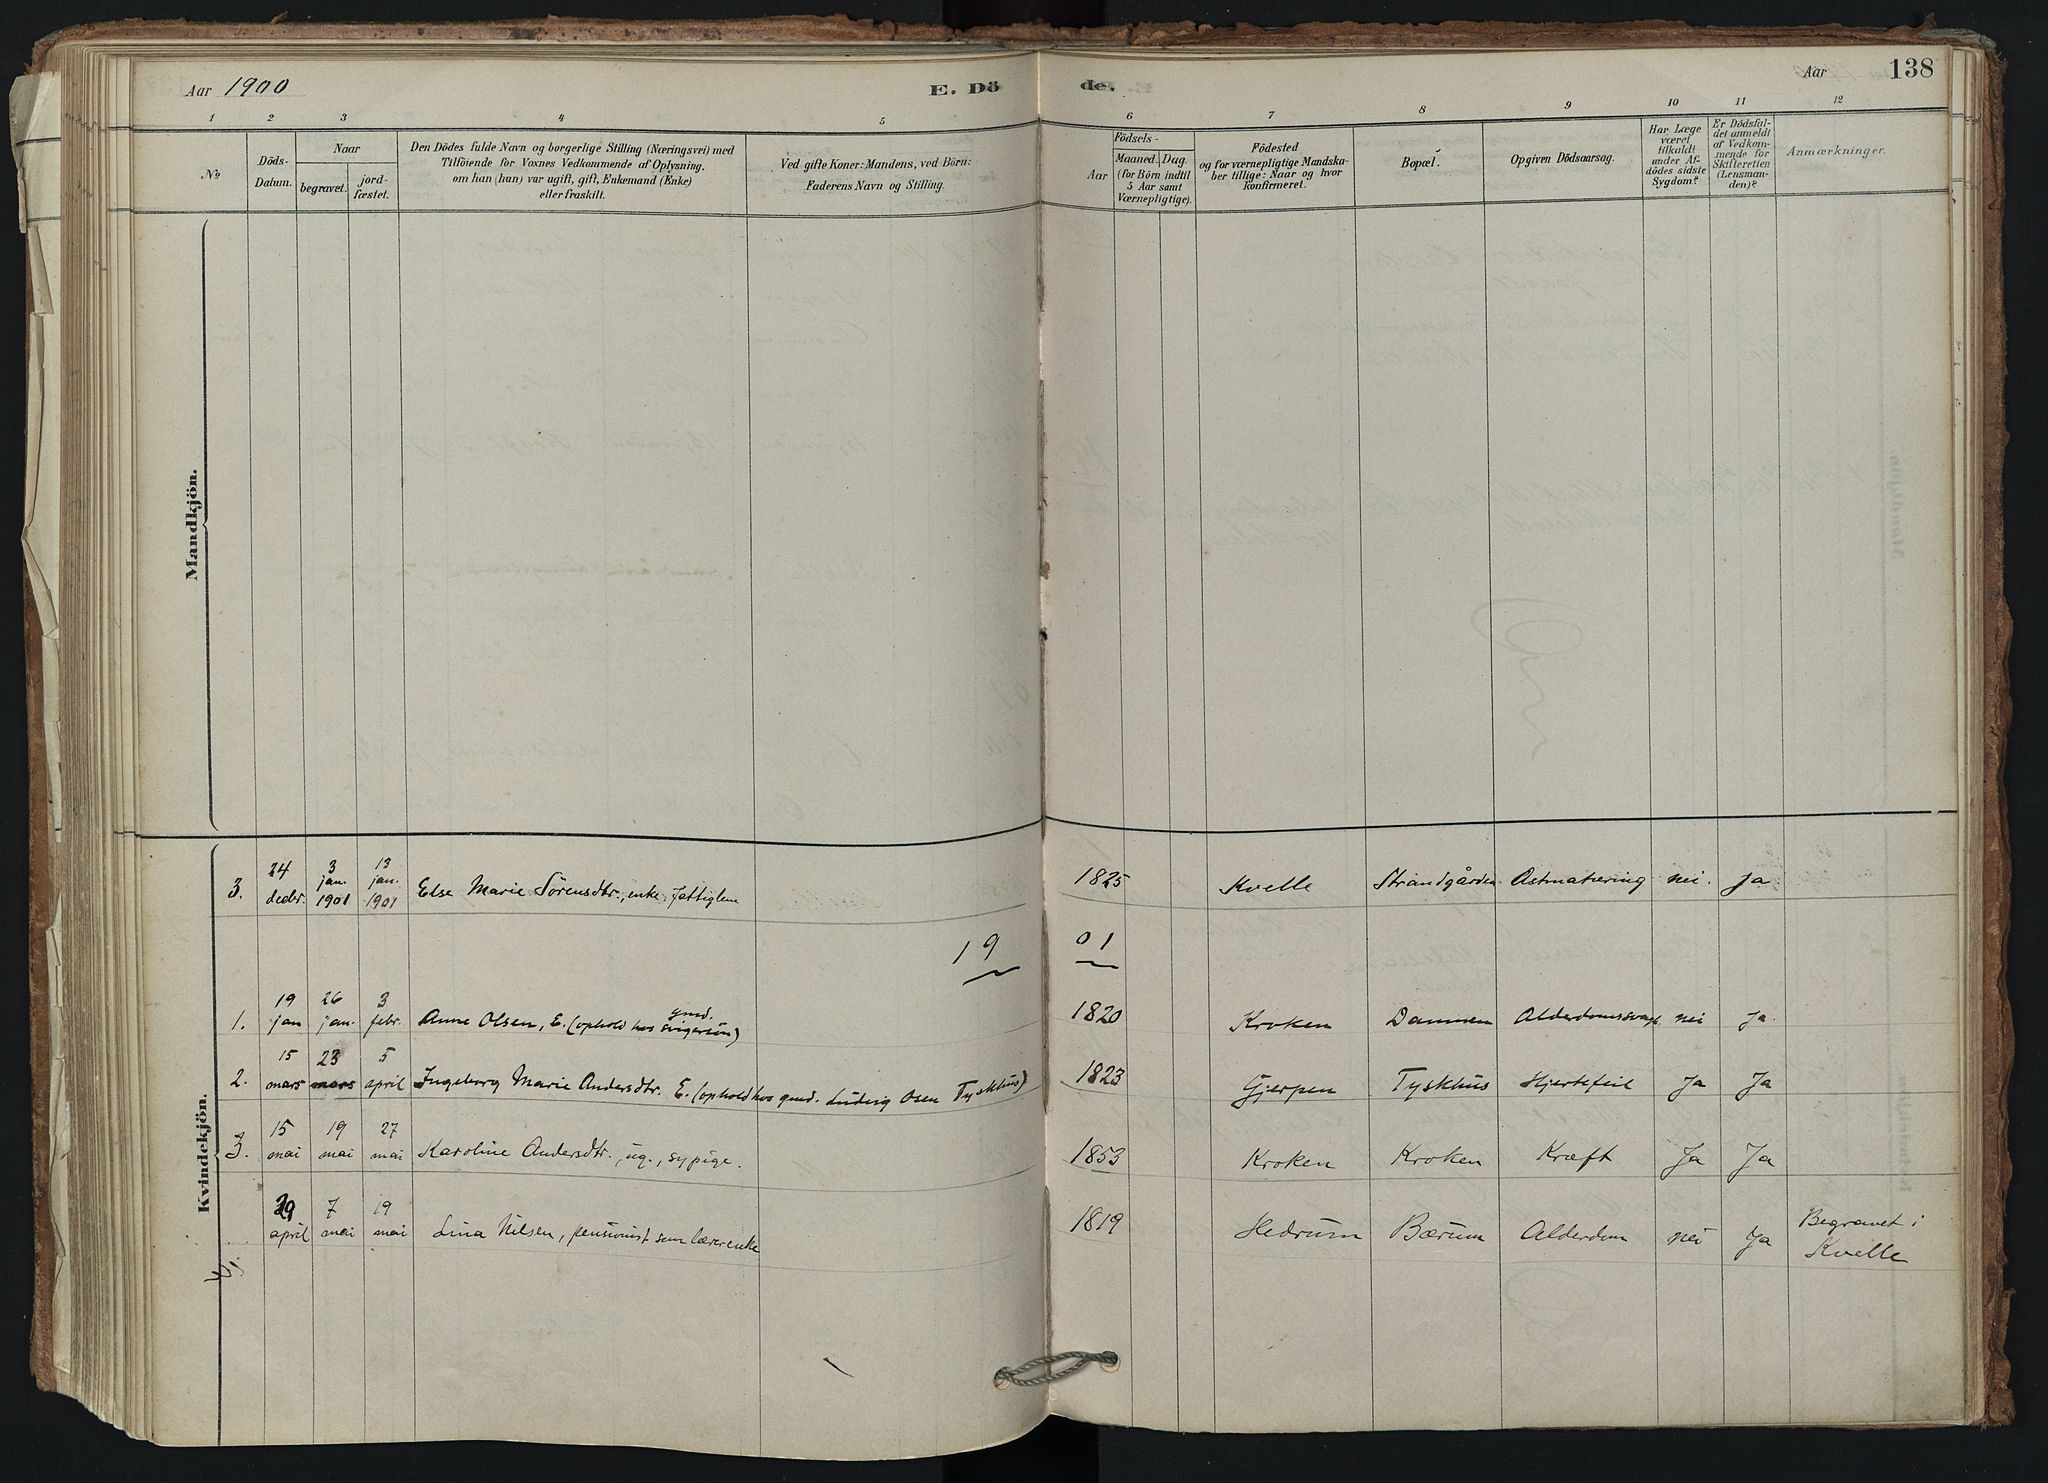 Aar 1900
E. Dö
de.
Aar
138
1 2 3 4 5 6 7 8 9 10 11 12
No
Döds-
Datum.
Naar
begravet.
jord-
fæstet.
Den Dödes fulde Navn og borgerlige Stilling (Næringsvei) med
Tilföiende for Voxnes Vedkommende af Oplysning.
om han (hun) var ugift, gift, Enkemand (Enke)
eller fraskilt.
Ved gifte Koner: Mandens, ved Börn:
Faderens Navn og Stilling.
Födsels-
Aar
Maaned. Dag.
(for Börn indtil
5 Aar samt
Værnepligtige).
Födested
og for værnepligtige Mandska-
ber tillige: Naar og hvor
konfirmeret.
Bopæl.
Opgiven Dödsaarsag.
Har Læge
været
tilkaldt
under Af-
dödes sidste
Sygdom?
Er Dödsfal-
det anmeldt
af Vedkom-
mende for
Skifteretten
(Lensman-
den)?
Anmærkninger.
Mandkjön.
Kvindekjön.
3. 24 decbr. 3 jan. 1901 13 jan. 1901 Else Marie Sörensdtr., enke, fattiglem 1825 Kvelle Strandgården Astmatæring nei. Ja.
1901
1. 19 jan 26 jan. 3 febr. Anne Olsen, E. (ophold hos gmd. svigersön) 1820 Kroken Dammen nei Ja.
2. 15 mars 23 mars 5 april Ingeborg Marie Andersdtr. E. (ophold hos gmd. Ludvig Osen Tyskhus) 1823 Gjerpen Tyskhus Hjertefeil Ja Ja
3. 15 mai 19 mai 27 mai Karoline Andersdtr., ug., sypige. 1853 Kroken Kroken Kræft Ja Ja
29 april 7 mai 19 mai Lina Nilsen, pensionist som lærerenke 1819 Hedrum Bærum Alderdom nei Ja Begravet i
Kvelle